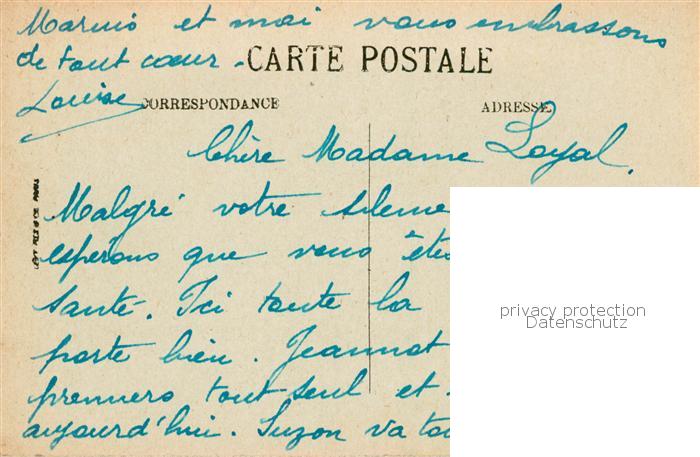 Marius et moi vous embrassons
de tout cœur.
CARTE POSTALE
Louise
CORRESPONDANCE
ADRESSE
Chère Madame Loyal,
Malgré votre silence
espérons que vous êtes
santé. Ici toute la
porte bien. Jeannot
premiers tout seul et
aujourd'hui. Suzon va
LEVY FILS & CIE PARIS
privacy protection
Datenschutz